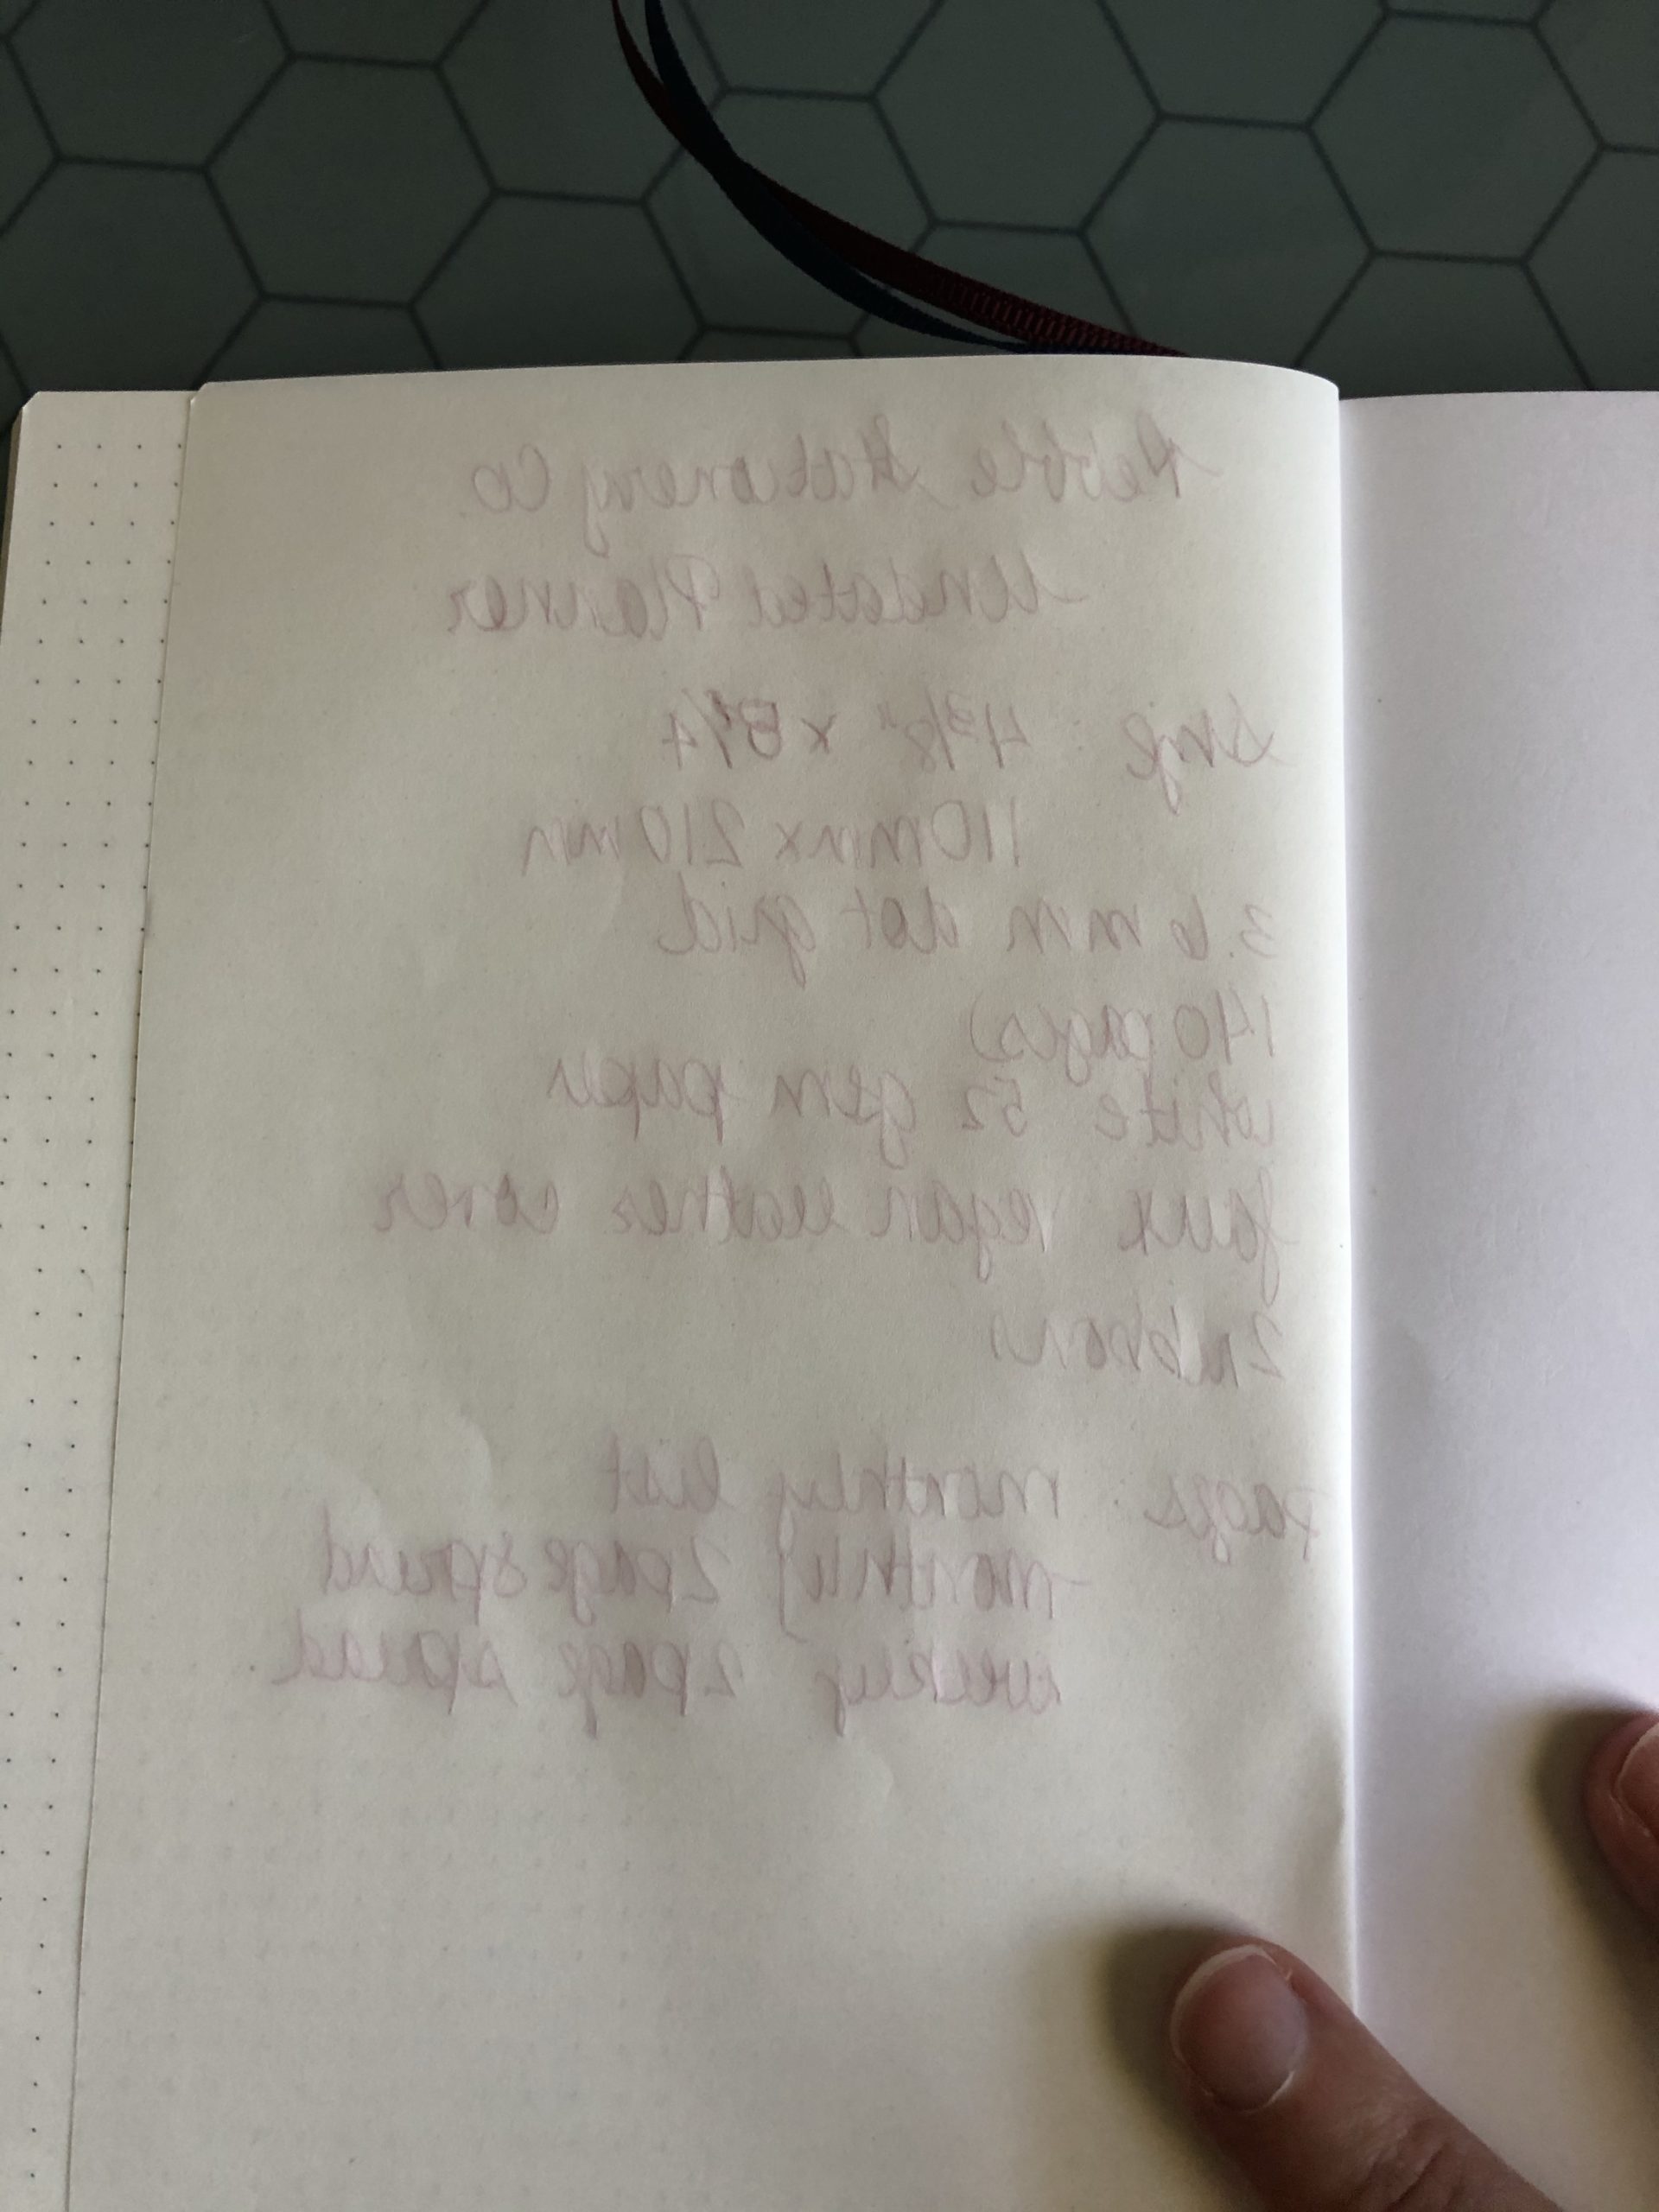 Pebble Stationery Co.
Undated Planner
Size: 4 3/8" x 8 1/4
110mm x 210mm
3.6 mm dot grid
140 page(s)
white 52 gsm paper
faux vegan leather cover
2 ribbons
pages: monthly list
monthly 2 page spread
weekly 2 page spread